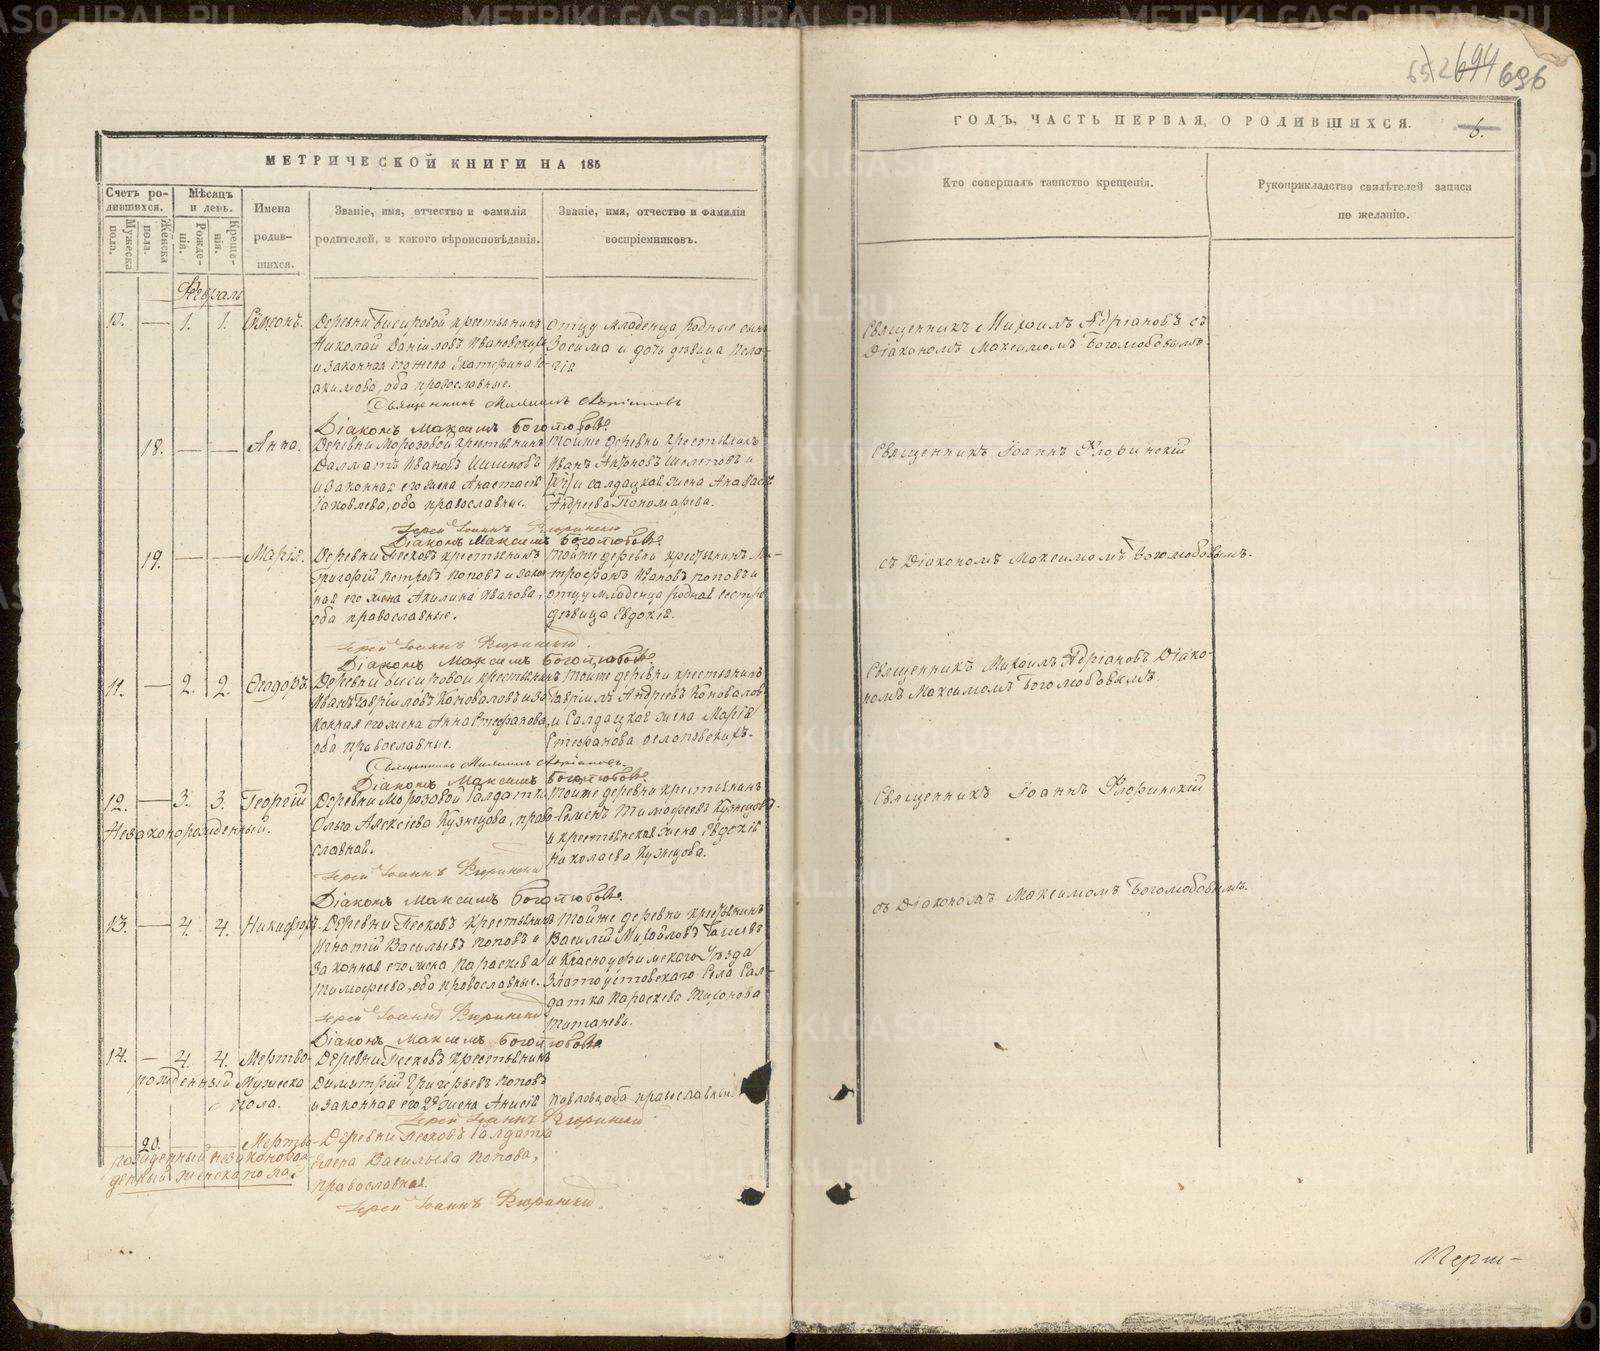 652 694 696
МЕТРИЧЕСКОЙ КНИГИ НА 185
Счетъ ро-
дившихся.
Мужеска
пола.
Женска
пола.
Мѣсяцъ
и день.
Рожде-
нія.
Креще-
нія.
Имена
родив-
шихся.
Званіе, имя, отчество и фамилія
родителей, и какого вѣроисповѣданія.
Званіе, имя, отчество и фамилія
воспріемниковъ.
Февраль
10. — 1. 1. Симеонъ.
Деревни Бисировой крестьянинъ
Николай Даніиловъ Ивановскихъ
и законная его жена Екатерина Іо-
акимова, оба православные.
Отцу младенца родные сынъ
Зосима и дочь дѣвица Пела-
гія
Священникъ Михаилъ Адріановъ
Діаконъ Максимъ Боголюбовъ.
18. — — Анна.
Деревни Морозовой крестьянинъ
Далматъ Ивановъ
и законная его жена Анастасія
Іаковлева, оба православные.
Тойже деревни крестьянинъ
Иванъ Антоновъ и
и салдацкая жена
Андреева Пономарева.
Іерей Іоаннъ Флоринскій
Діаконъ Максимъ Боголюбовъ.
19. — — Марія.
Деревни Песковъ крестьянинъ
Григорій Петровъ Поповъ и закон-
ная его жена Акилина Иванова,
оба православные.
Тойже деревни крестьянинъ Ми-
трофанъ Ивановъ Поповъ и
отцу младенца родная сестра
дѣвица Евдокія.
Іерей Іоаннъ Флоринскій.
Діаконъ Максимъ Боголюбовъ.
11. — 2. 2. Ѳеодоръ.
Деревни Бисировой крестьянинъ
Иванъ Гавріиловъ Коноваловъ и за-
конная его жена Анна Стефанова,
оба православные.
Тойже деревни крестьянинъ
Гавріилъ Андреевъ Коноваловъ
и Салдацкая жена Марія
Стефанова
Священникъ Михаилъ Адріановъ.
Діаконъ Максимъ Боголюбовъ.
12. — 3. 3. Георгій
Незаконорожденный.
Деревни Морозовой Салдатка
Ольга Алексіева Кузнецова, право-
славная.
Тойже деревни крестьянинъ
Семенъ Тимофеевъ Кузнецовъ
и крестьянская жена Евдокія
Николаева Кузнецова.
Іерей Іоаннъ Флоринскій
Діаконъ Максимъ Боголюбовъ.
13. — 4. 4. Никифоръ.
Деревни Песковъ крестьянинъ
Игнатій Васильевъ Поповъ и
законная его жена Параскева
Тимофеева, оба православные.
Тойже деревни крестьянинъ
Василій Михайловъ
и Красноуфимскаго Уѣзда
Златоустовскаго Села Сал-
датка Параскева Тихонова
Іерей Іоаннъ Флоринскій
Діаконъ Максимъ Боголюбовъ
14. — 4. 4. Мертво-
рожденный Мужеска
пола.
Деревни Песковъ крестьянинъ
Димитрій Григорьевъ Поповъ
и законная его жена Анисія
Павлова, оба православные.
Іерей Іоаннъ Флоринскій
— 20. — — Мертво-
рожденный незаконорож-
денный женска пола.
Деревни Песковъ Салдатка
Елена Васильева Попова,
православная.
Іерей Іоаннъ Флоринскій.
ГОДЪ, ЧАСТЬ ПЕРВАЯ, О РОДИВШИХСЯ.
6.
Кто совершалъ таинство крещенія.
Рукоприкладство свидѣтелей записи
по желанію.
Священникъ Михаилъ Адріановъ съ
Діакономъ Максимомъ Боголюбовымъ.
Священникъ Іоаннъ Флоринскій
съ Діакономъ Максимомъ Боголюбовымъ.
Священникъ Михаилъ Адріановъ Діако-
номъ Максимомъ Боголюбовымъ.
Священникъ Іоаннъ Флоринскій
съ Діакономъ Максимомъ Боголюбовымъ.
METRIKI.GASO-URAL.RU